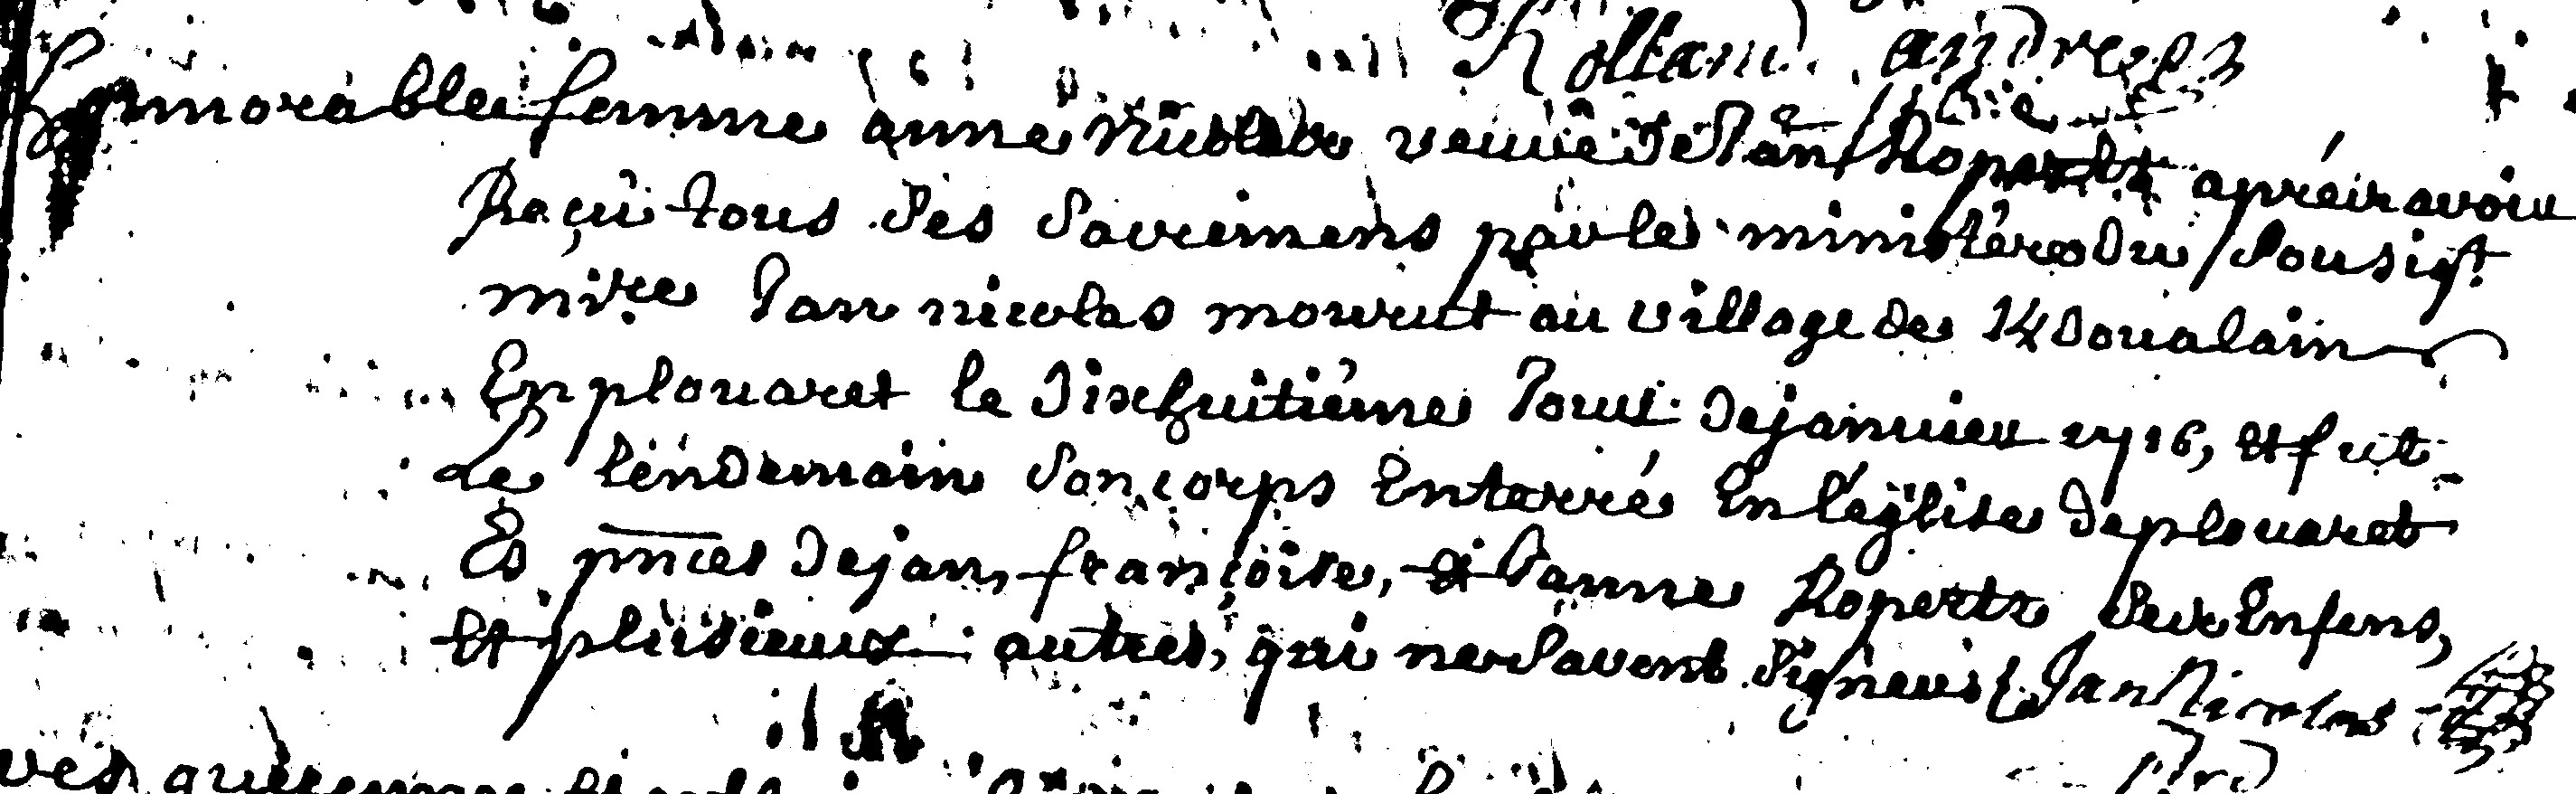 Rolland. andre
honnorable femme anne Nicolas veuve de Jan Ropertz apréir avoir
Reçu tous ses Sacremens par le ministère du Sousigt
mire Jan nicolas mourut au village de Kdoualain
En plouaret le dixhuitième Jour de janvier 1716, et fut
Le lendemain Son corps Enterré En l'église de plouaret
Es pnces de jan, françoise, et Janne Ropertz Ses Enfens,
et plusieurs autres, qui ne Savent Signer Jan Nicolas